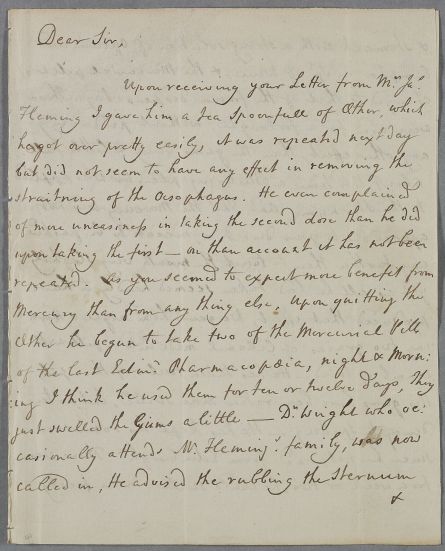 Dear Sir,
Upon receiving your Letter from Mr. Ja.s
Fleming I gave him a Tea Spoonfull of Æther, which
he got over pretty easily, it was repeated next day
but did not seem to have any effect in removing the
straitning of the Oesophagus. He even complained
of more uneasiness in taking the second dose than he did
upon taking the first — on that account it has not been
repeated. as you seemed to expect more benefit from
Mercury than from any thing else, upon quitting the
Æther he begun to take two of the Mercurial Pill
of the last Edinr. Pharmacopœia, night & Morn:
:ing I think he used them for ten or twelve days, They
just swelled the Gums a little — Dr. Wright who oc:
casionally attends Mr. Fleming's family, was now
called in, He advised the rubbing the Sternum
&